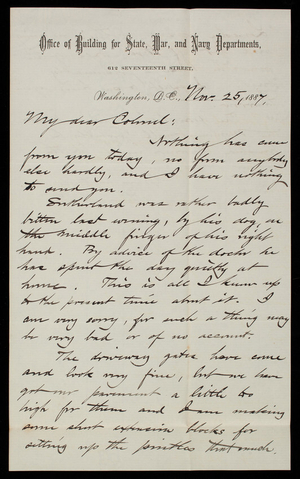 Office of Building for State, War, and Navy Departments,
612 SEVENTEENTH STREET,
Washington, D.C., Nov. 25, 1887.
My dear Colonel:
Nothing has come
from you today, no from anybody
else hardly, and I have nothing
to send you.
Sutherland was rather badly
bitten last evening, by his dog on
the middle finger of his right
hand. By advice of the doctor he
has spent the day quietly at
home. This is all I know up
to the present time about it. I
am very sorry, for such a thing may
be very bad or of no account.
The driveway gates have come
and look very fine, but we have
got our pavement a little too
high for them and I am making
some short extension blocks for
setting up the pintles that much.